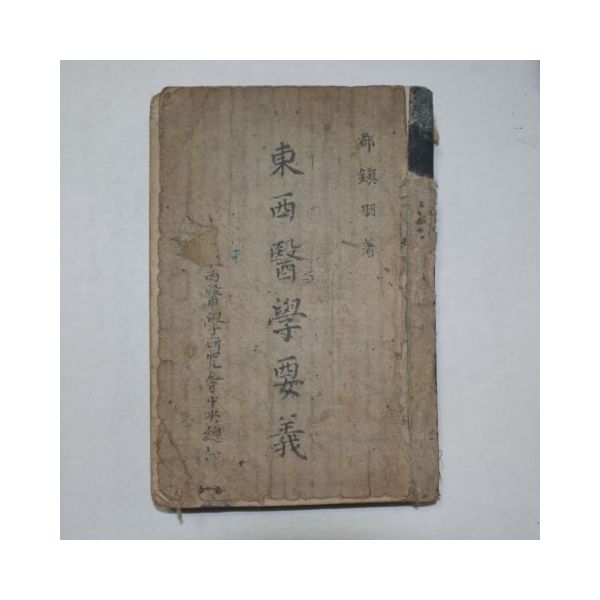 都鎭羽 著
東西醫學要義
西醫學研究會中央總部